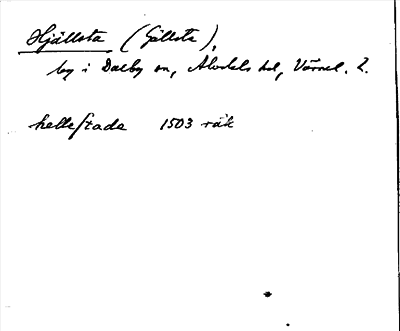 Hjällsta (Gällsta),
by i Dalby sn, Älvdals hd, Värml. l.
hellestade 1503 räk